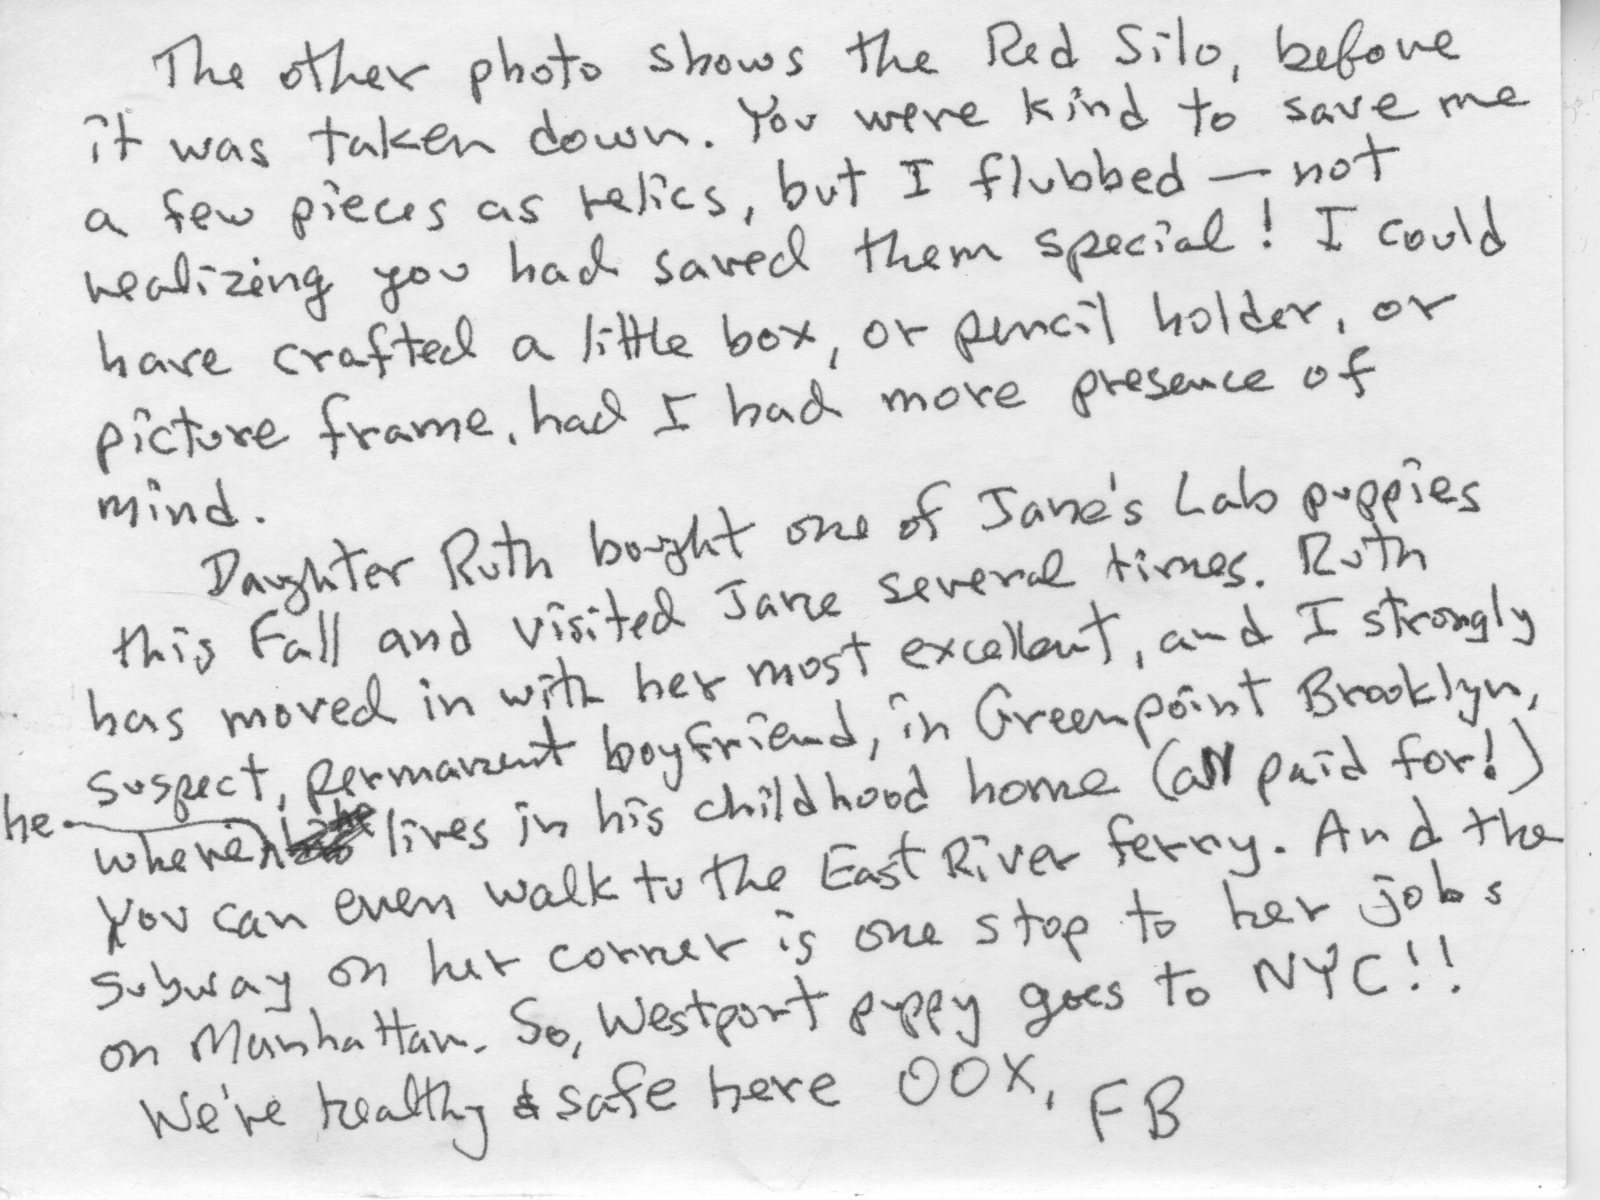 The other photo shows the Red Silo, before
it was taken down. You were kind to save me
a few pieces as relics, but I flubbed — not
realizing you had saved them special! I could
have crafted a little box, or pencil holder, or
picture frame, had I had more presence of
mind.
Daughter Ruth bought one of Jane's Lab puppies
this Fall and visited Jane several times. Ruth
has moved in with her most excellent, and I strongly
suspect, permanent boyfriend, in Greenpoint Brooklyn,
where he lives in his childhood home (all paid for!)
You can even walk to the East River ferry. And the
subway on her corner is one stop to her jobs
on Manhattan. So, Westport puppy goes to NYC!!
We're healthy & safe here OOX, FB